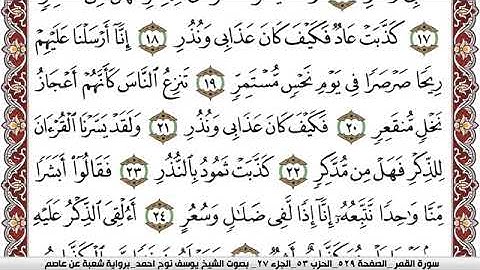 ١٧ كَذَّبَتْ عَادٌ فَكَيْفَ كَانَ عَذَابِى وَنُذُرِ ١٨ إِنَّآ أَرْسَلْنَا عَلَيْهِمْ
رِيحًا صَرْصَرًا فِى يَوْمِ نَحْسٍ مُّسْتَمِرٍّ ١٩ تَنزِعُ ٱلنَّاسَ كَأَنَّهُمْ أَعْجَازُ
نَخْلٍ مُّنقَعِرٍ ٢٠ فَكَيْفَ كَانَ عَذَابِى وَنُذُرِ ٢١ وَلَقَدْ يَسَّرْنَا ٱلْقُرْءَانَ
لِلذِّكْرِ فَهَلْ مِن مُّدَّكِرٍ ٢٢ كَذَّبَتْ ثَمُودُ بِٱلنُّذُرِ ٢٣ فَقَالُوٓا۟ أَبَشَرًا
مِّنَّا وَٰحِدًا نَّتَّبِعُهُۥٓ إِنَّآ إِذًا لَّفِى ضَلَٰلٍ وَسُعُرٍ ٢٤ أَءُلْقِىَ ٱلذِّكْرُ عَلَيْهِ
سورة القمر _الصفحة ٥٢٩_ الحزب ٥٣ _الجزء ٢٧_ بصوت الشيخ يوسف نوح احمد_برواية شعبة عن عاصم